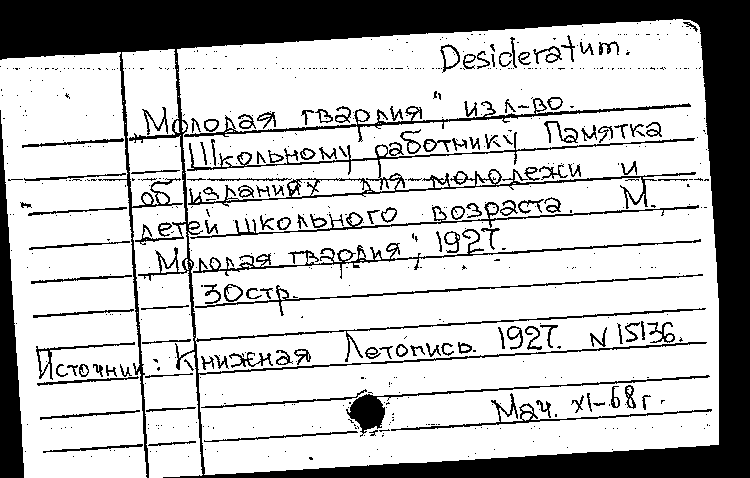 Desideratum.
„Молодая гвардия", изд-во.
Школьному работнику Памятка
об изданиях для молодежи и
детей школьного возраста. М.,
„Молодая гвардия", 1927.
30стр.
Источник: Книжная Летопись. 1927. N 15136.
Мач. XI-68г.